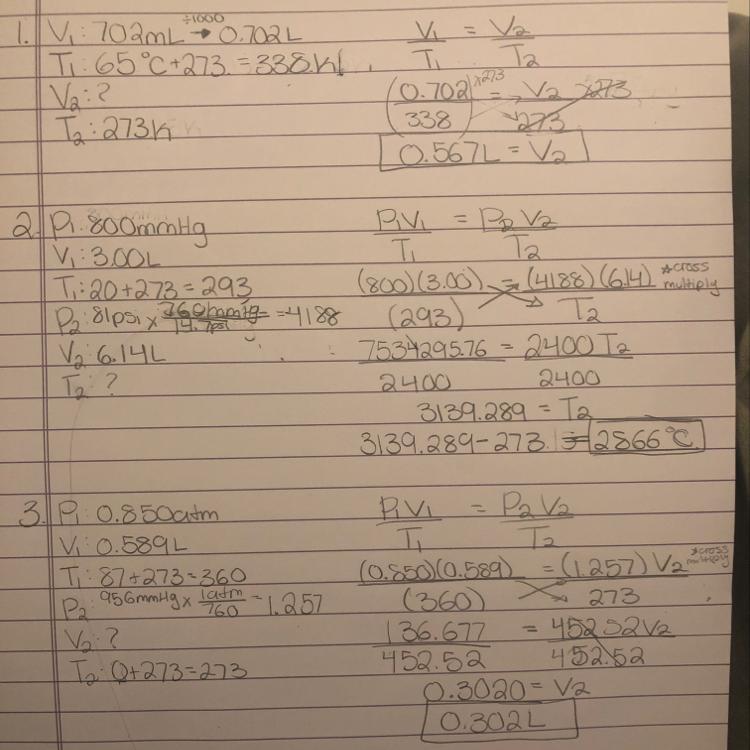 1. V₁: 702mL ÷1000→ 0.702L
T₁: 65°C+273 = 338K
V₂: ?
T₂: 273K
V₁/T₁ = V₂/T₂
(0.702/338) x273 = V₂/273 x273
0.567L = V₂
2. P₁: 800mmHg
V₁: 3.00L
T₁: 20+273=293
P₂: 81psi x 760mmHg/14.7psi = 4188
V₂: 6.14L
T₂: ?
P₁V₁/T₁ = P₂V₂/T₂
(800)(3.00)/(293) = (4188)(6.14)/T₂ *cross multiply
7534295.76/2400 = 2400T₂/2400
3139.289 = T₂
3139.289-273 = 2866°C
3. P₁: 0.850atm
V₁: 0.589L
T₁: 87+273=360
P₂: 956mmHg x 1atm/760 = 1.257
V₂: ?
T₂: 0+273=273
P₁V₁/T₁ = P₂V₂/T₂
(0.850)(0.589)/(360) = (1.257)V₂/273 *cross multiply
136.677/452.52 = 452.52V₂/452.52
0.3020 = V₂
0.302L